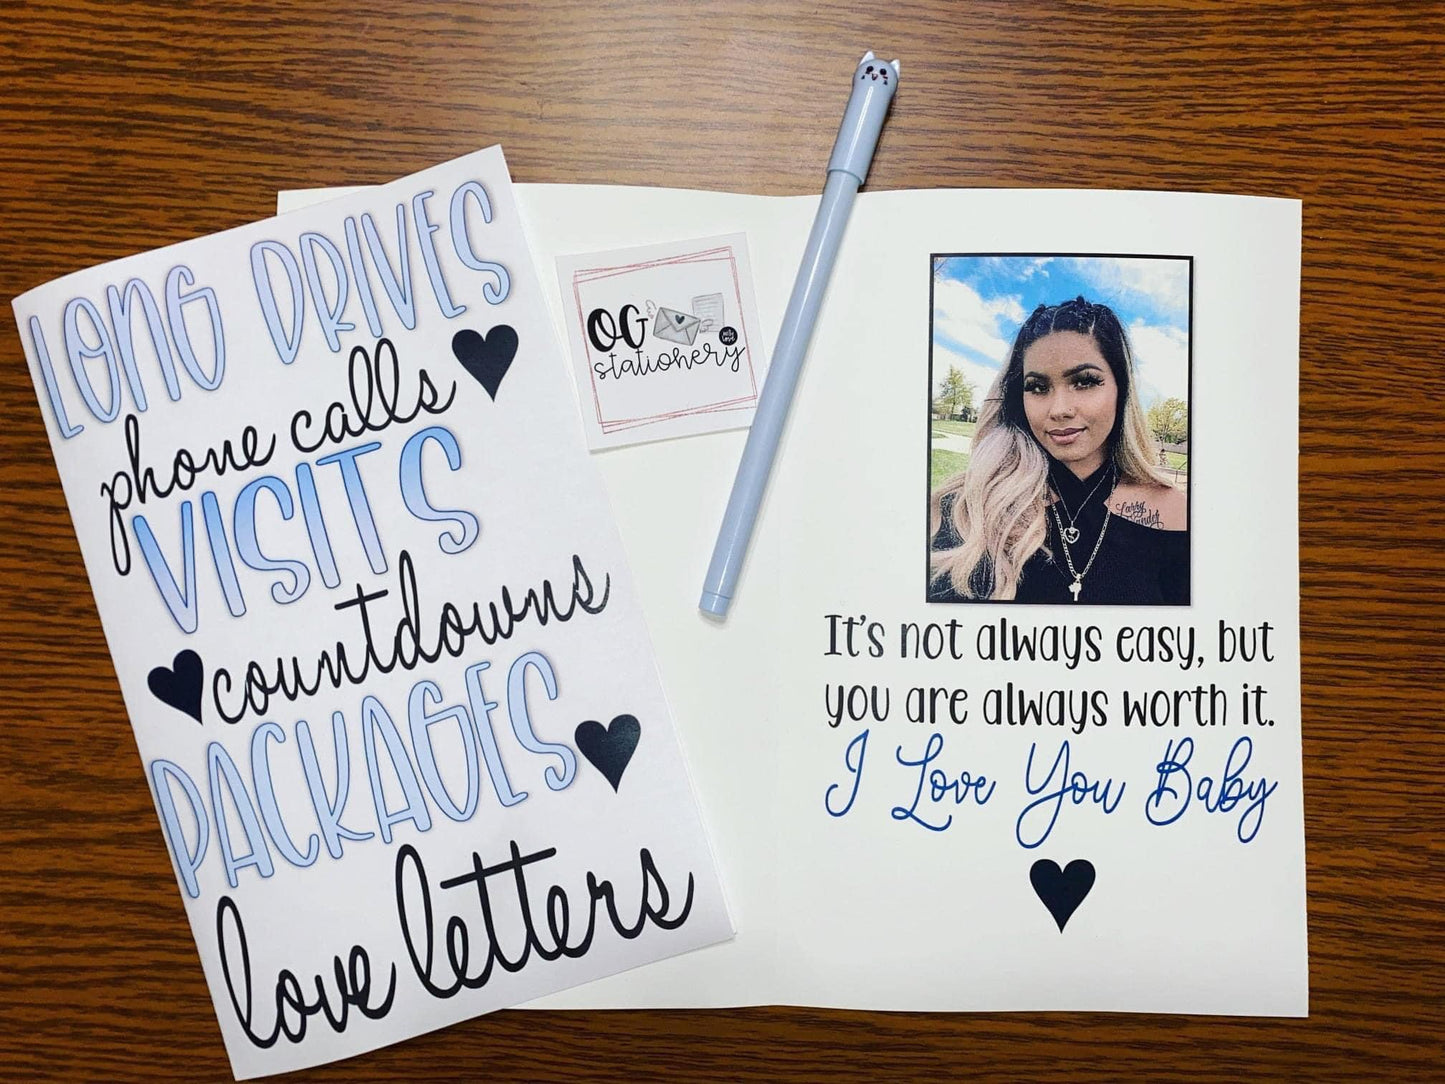 LONG DRIVES
phone calls
VISITS
countdowns
PACKAGES
love letters
OG
stationery
It's not always easy, but
you are always worth it.
I Love You Baby
Larry